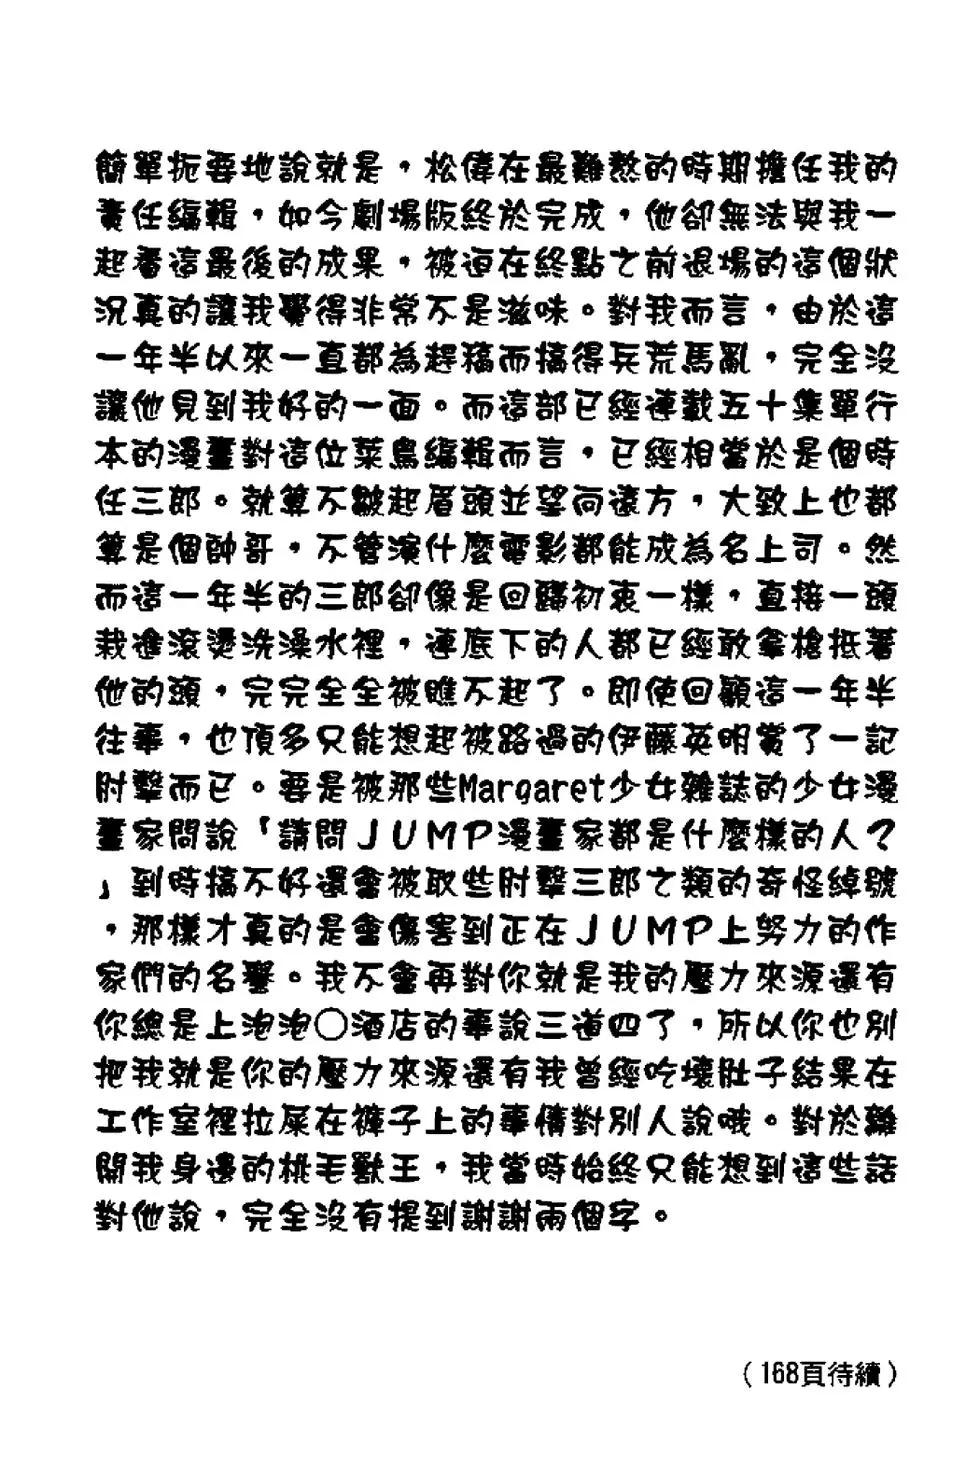 簡單扼要地說就是，松偉在最難熬的時期擔任我的
責任編輯，如今劇場版終於完成，他卻無法與我一
起看這最後的成果，被迫在終點之前退場的這個狀
況真的讓我覺得非常不是滋味。對我而言，由於這
一年半以來一直都為趕稿而搞得兵荒馬亂，完全沒
讓他見到我好的一面。而這部已經連載五十集單行
本的漫畫對這位菜鳥編輯而言，已經相當於是個時
任三郎。就算不皺起眉頭並望向遠方，大致上也都
算是個帥哥，不管演什麼電影都能成為名上司。然
而這一年半的三郎卻像是回歸初衷一樣，直接一頭
栽進滾燙洗澡水裡，連底下的人都已經敢拿槍抵著
他的頭，完完全全被瞧不起了。即使回顧這一年半
往事，也頂多只能想起被路過的伊藤英明賞了一記
肘擊而已。要是被那些Margaret少女雜誌的少女漫
畫家問說「請問ＪＵＭＰ漫畫家都是什麼樣的人？
」到時搞不好還會被取些肘擊三郎之類的奇怪綽號
，那樣才真的是會傷害到正在ＪＵＭＰ上努力的作
家們的名譽。我不會再對你就是我的壓力來源還有
你總是上泡泡○酒店的事說三道四了，所以你也別
把我就是你的壓力來源還有我曾經吃壞肚子結果在
工作室裡拉屎在褲子上的事情對別人說哦。對於離
開我身邊的桃毛獸王，我當時始終只能想到這些話
對他說，完全沒有提到謝謝兩個字。
（168頁待續）